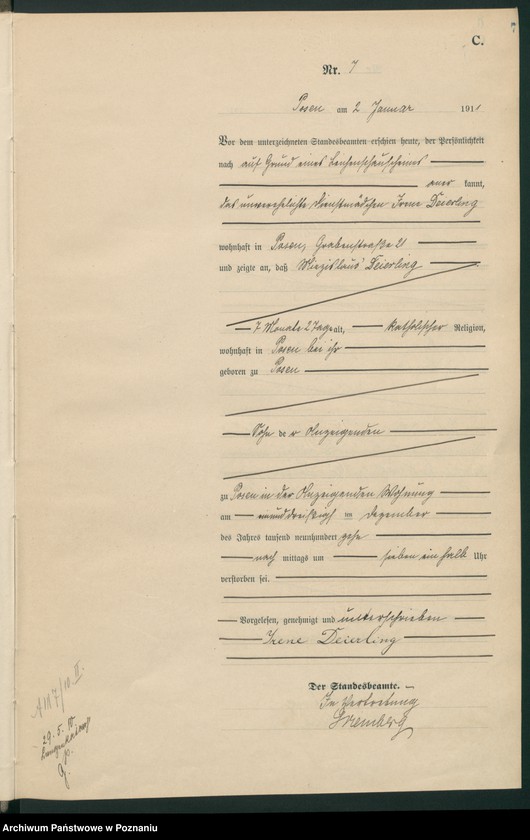 7
C.
Nr. 7
Posen am 2 Januar 1911
Vor dem unterzeichneten Standesbeamten erschien heute, der Persönlichkeit
nach auf Grund eines Leichenschauscheins
aner kannt,
das unverehelichte Dienstmädchen Irene Deierling
wohnhaft in Posen, Grabenstraße 21
und zeigte an, daß Deierling
7 Monate 2 Tage alt, katholischer Religion,
wohnhaft in Posen bei ihr
geboren zu Posen
Sohn de r Anzeigenden
zu Posen in der Anzeigenden Wohnung
am einunddreißigsten Dezember
des Jahres tausend neunhundert zehn
nach mittags um sieben ein halb Uhr
verstorben sei.
Vorgelesen, genehmigt und unterschrieben
Irene Deierling
Der Standesbeamte.
In Vertretung
A 117/10 II.
29. 5. 10
Archiwum Państwowe w Poznaniu